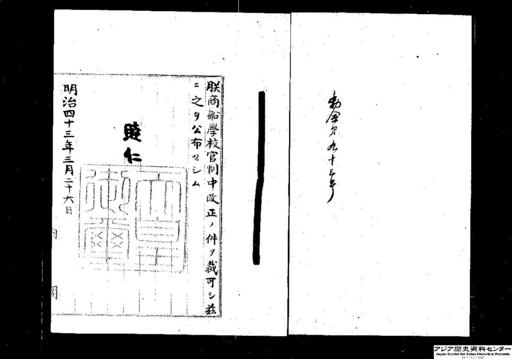 勅令第九十三号
朕商船學校官制中改正ノ件ヲ裁可シ茲
ニ之ヲ公布セシム
睦仁
天皇御璽
明治四十三年三月二十六日
内閣
アジア歴史資料センター
Japan Center for Asian Historical Records